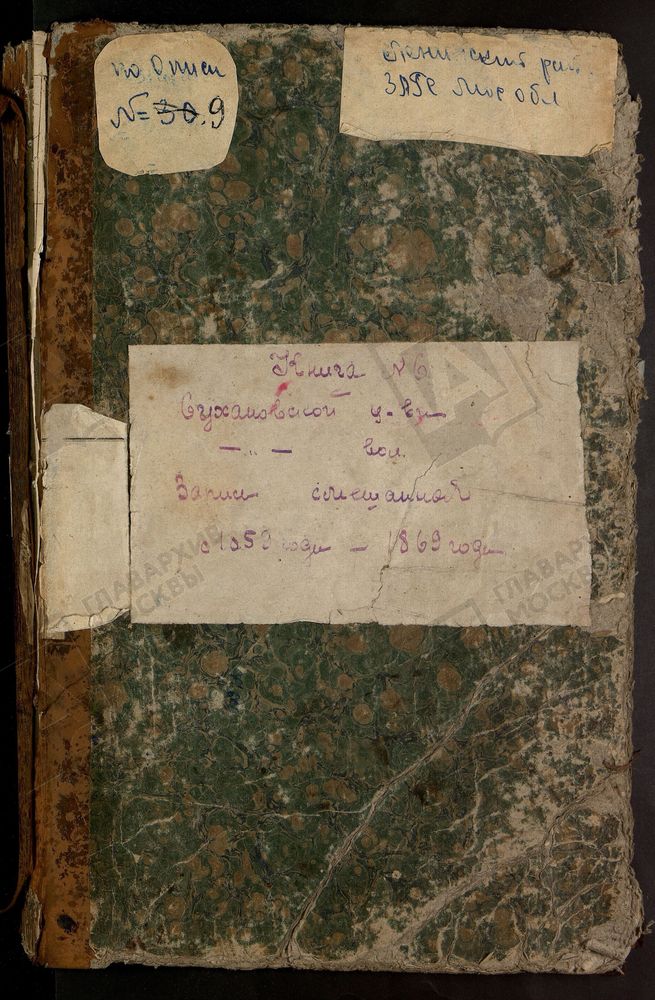 по Описи
№ 30. 9
Ленинский рай.
ЗАГС Мос обл
Книга № 6
Сухановской ц-ви
— „ — вол.
Записи смешанной
с 1859 годи — 1869 годи
ГЛАВАРХИВ
МОСКВЫ
ГЛАВАРХИВ
МОСКВЫ